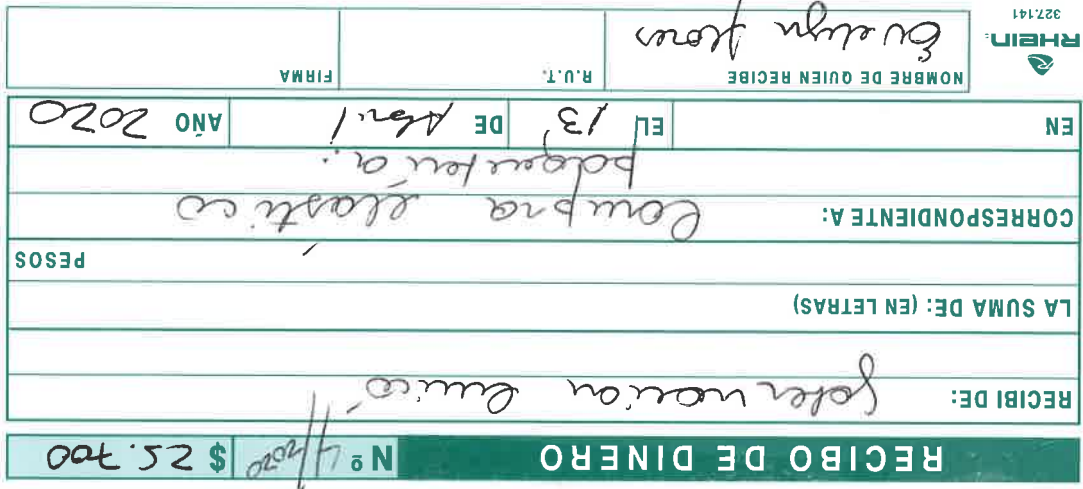 RECIBO DE DINERO Nº 4/2020 $ 25.700
RECIBI DE: Gobernación
LA SUMA DE: (EN LETRAS)
PESOS
CORRESPONDIENTE A: Compra elástico
paquetería.
EN EL 13 DE Abril AÑO 2020
NOMBRE DE QUIEN RECIBE R.U.T. FIRMA
Evelyn Flores
RHEIN
327.141